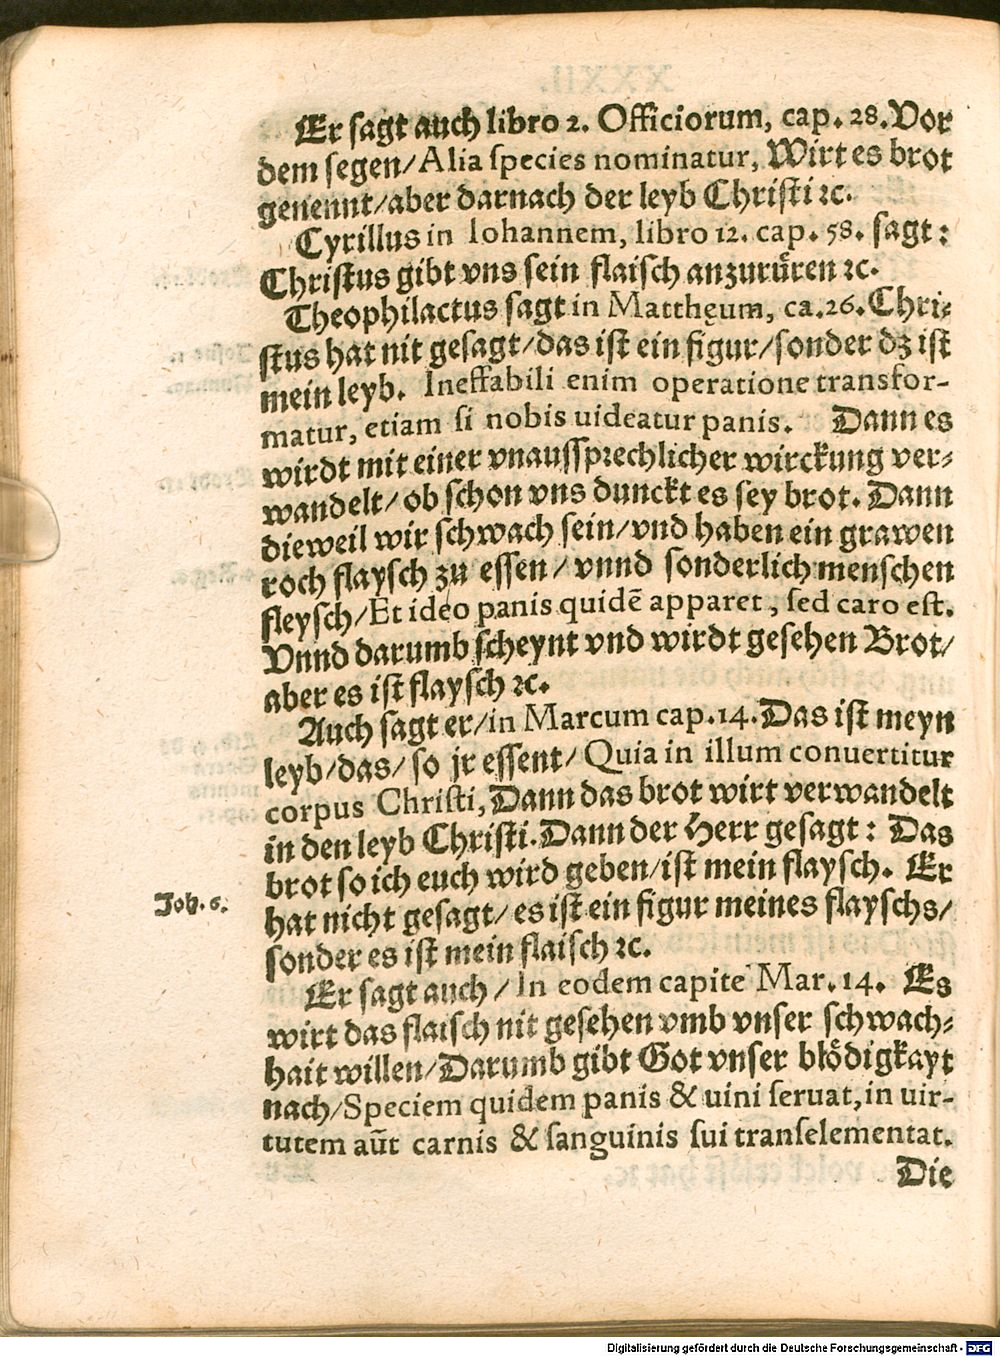 Er sagt auch libro 2. Officiorum, cap. 28. Vor
dem segen/ Alia species nominatur, Wirt es brot
genennt/ aber darnach der leyb Christi ꝛc.
Cyrillus in Iohannem, libro 12. cap. 58. sagt:
Christus gibt vns sein flaisch anzurůren ꝛc.
Theophilactus sagt in Mattheum, ca. 26. Chri⸗
stus hat nit gesagt/ das ist ein figur/ sonder dz ist
mein leyb. Ineffabili enim operatione transfor-
matur, etiam si nobis uideatur panis. Dann es
wirdt mit einer vnaussprechlicher wirckung ver⸗
wandelt/ ob schon vns dunckt es sey brot. Dann
dieweil wir schwach sein/ vnd haben ein grawen
roch flaysch zu essen/ vnnd sonderlich menschen
fleysch/ Et ideo panis quidē apparet, sed caro est.
Vnnd darumb scheynt vnd wirdt gesehen Brot/
aber es ist flaysch ꝛc.
Auch sagt er/ in Marcum cap. 14. Das ist meyn
leyb/ das/ so jr essent/ Quia in illum conuertitur
corpus Christi, Dann das brot wirt verwandelt
in den leyb Christi. Dann der Herr gesagt: Das
brot so ich euch wird geben/ ist mein flaysch. Er
Joh. 6.
hat nicht gesagt/ es ist ein figur meines flayschs/
sonder es ist mein flaisch ꝛc.
Er sagt auch/ In eodem capite Mar. 14. Es
wirt das flaisch nit gesehen vmb vnser schwach⸗
hait willen/ Darumb gibt Got vnser blödigkayt
nach/ Speciem quidem panis & uini seruat, in uir-
tutem aūt carnis & sanguinis sui transelementat.
Die
Digitalisierung gefördert durch die Deutsche Forschungsgemeinschaft - DFG